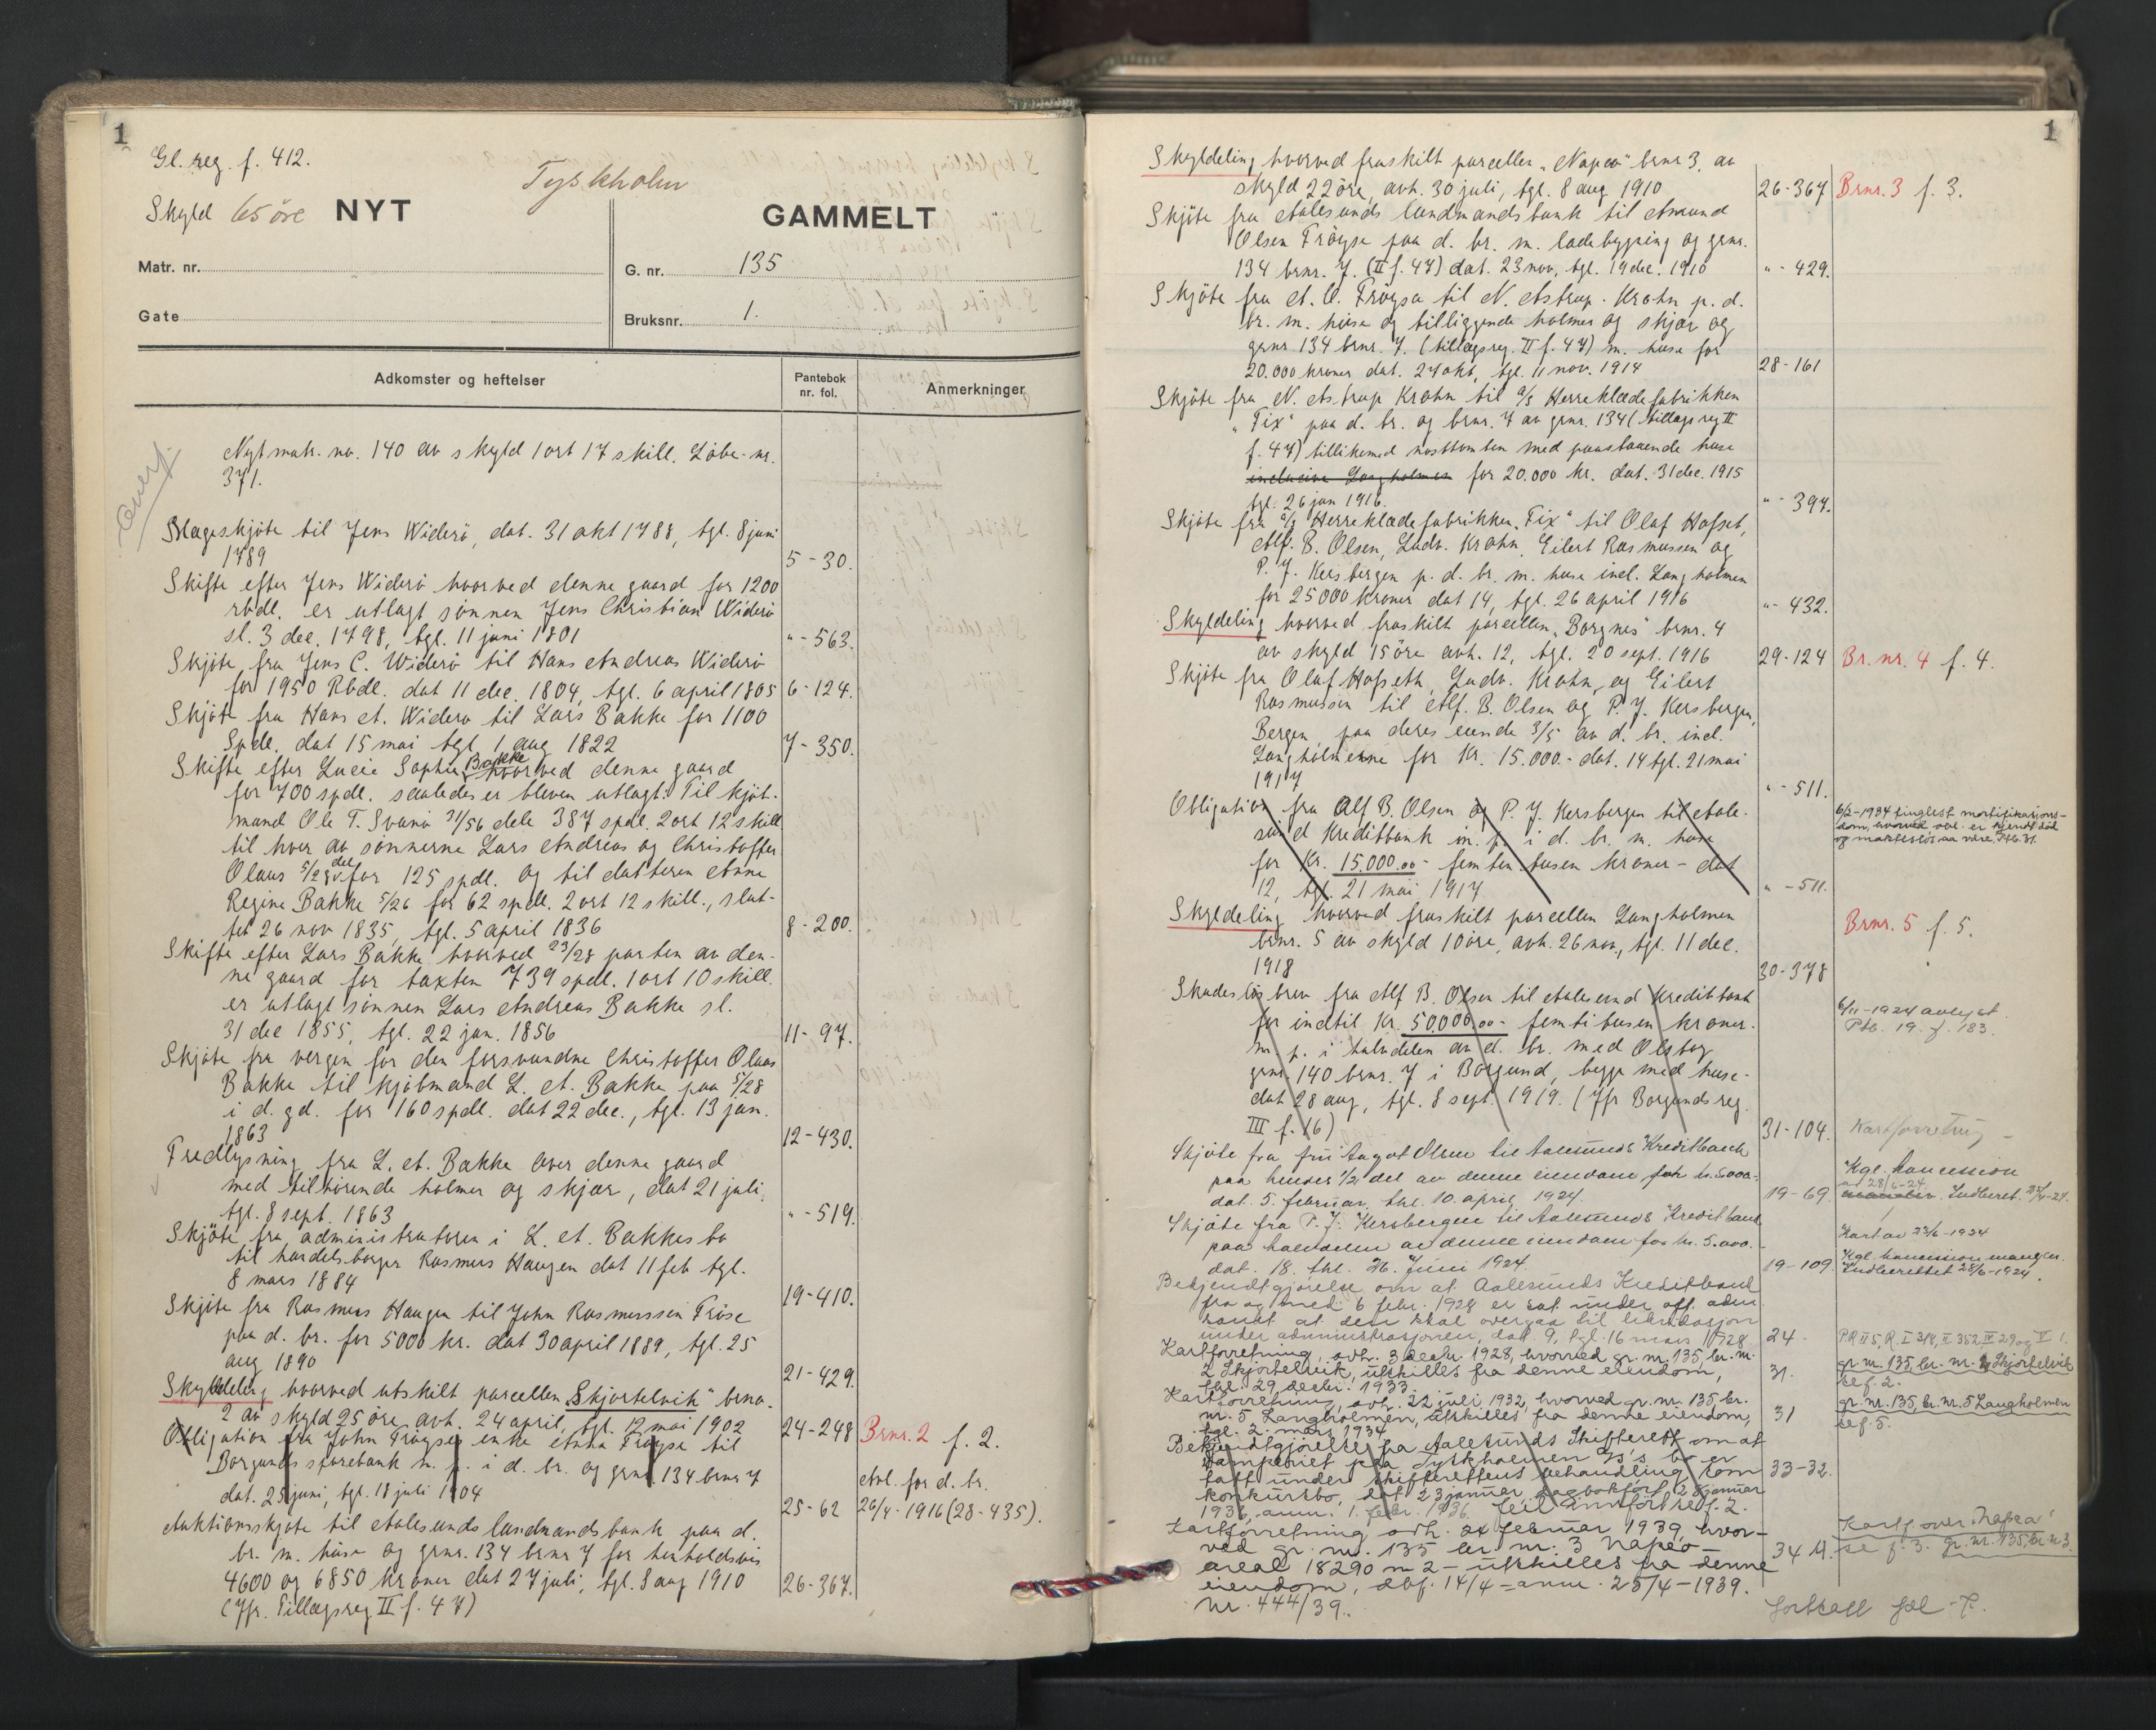 1
Gl. reg. f. 412.
Tyskholm
Skyld 65 öre NYT
GAMMELT
Matr. nr.
G. nr. 135
Gate
Bruksnr. 1.
Adkomster og heftelser
Pantebok nr. fol.
Anmerkninger
Nyt matr. no. 140 av skyld 1 ort 17 skill. Löbe-nr.
371.
Mageskjöte til Jens Widerö, dat. 31 okt 1788, tgl. 8 juni
1789 5-30.
Skifte efter Jens Widerö hvorved denne gaard for 1200
rbdl. er utlagt sönnen Jens Christian Widerö
sl. 3 dec. 1798, tgl. 11 juni 1801 "-563.
Skjöte fra Jens C. Widerö til Hans Andreas Widerö
for 1950 Rbdl. dat 11 dec. 1804, tgl. 6 april 1805 6-124.
Skjöte fra Hans A. Widerö til Lars Bakke for 1100
Spdl. dat 15 mai tgl 1 aug 1822 7-350.
Skifte efter Lucie Sophie Bakke hvorved denne gaard
for 700 spdl. saaledes er bleven utlagt: Til kjöb-
mand Ole T. Svanö 31/56 dele 387 spdl. 2 ort 12 skill
til hver av sönnerne Lars Andreas og Christoffer
Olaus 5/28 del for 125 spdl. og til datteren Anne
Regine Bakke 5/26 for 62 spdl. 2 ort 12 skill., slut-
tet 26 nov 1835, tgl. 5 april 1836 8-200.
Skifte efter Lars Bakke hvorved 23/28 parten av den-
ne gaard for taxten 739 spdl. 1 ort 10 skill.
er utlagt sönnen Lars Andreas Bakke sl.
31 dec 1855, tgl. 22 jan. 1856 11-97.
Skjöte fra vergen for den forsvundne Christoffer Olaus
Bakke til kjöbmand L. A. Bakke paa 5/28
i d. gd. for 160 spdl. dat 22 dec., tgl. 13 jan.
1863 12-430.
Fredlysning fra L. A. Bakke over denne gaard
med tilhörende holmer og skjær, dat 21 juli,
tgl. 8 sept. 1863 "-519.
Skjöte fra administratoren i L. A. Bakkes bo
til handelsborger Rasmus Haugen dat 11 feb tgl.
8 mars 1884 19-410.
Skjöte fra Rasmus Haugen til John Rasmussen Fröse
paa d. br. for 5000 kr. dat 30 april 1889, tgl. 25
aug 1890 21-429.
Skylddeling hvorved utskilt parcellen "Skjortelvik" brno.
2 av skyld 25 öre avh. 24 april, tgl. 12 mai 1902 24-248 Brnr. 2 f. 2.
Obligation fra John Fröyses enke Anna Fröysa til
Borgunds sparebank m. p. i d. br. og grnr. 134 brnr 7
dat. 25 juni, tgl. 18 juli 1904 25-62
Avl. for d. br.
26/4-1916 (28-435).
Auktionsskjøte til Aalesunds landmandsbank paa d.
br. m. huse og grnr. 134 brnr 7 for henholdsvis
4600 og 6850 kroner dat 27 juli, tgl. 8 aug 1910 26-367.
(Jfr. Tillægsreg II f. 47)
1
Skyldeling hvorved fraskilt parcellen "Napeo" brnr 3, av
skyld 22 öre, avh. 30 juli, tgl. 8 aug 1910 26-367 Brnr. 3 f. 3.
Skjöte fra Aalesunds landmandsbank til Amund
Olsen Fröysa paa d. br. m. ladebygning og grnr.
134 brnr. 7. (II f. 47) dat. 23 nov, tgl. 19 dec. 1910 "-429.
Skjöte fra A. O. Fröysa til N. Astrup-Krohn p. d.
br. m. huse og tilliggende holmer og skjær og
grnr 134 brnr. 7. (tillægsreg. II f. 47) m. huse for
20.000 kroner dat. 27 okt, tgl. 11 nov. 1914 28-161
Skjöte fra N. Astrup Krohn til A/S Herreklædefabrikken
"Fix" paa d. br. og brnr. 7 av grnr. 134 (tillægsreg II
f. 47) tillikemed nosttomten med paastaaende huse
inclusive Langholmen for 20.000 kr. dat. 31 dec. 1915
tgl. 26 jan 1916. "-394.
Skjöte fra A/S Herreklædefabrikken "Fix" til Olaf Hofset,
Alf. B. Olsen, Ludv. Krohn, Eilert Rasmussen og
P. J. Kersbergen p. d. br. m. huse incl. Langholmen
for 25000 kroner dat 14, tgl. 26 april 1916 "-432.
Skyldeling hvorved fraskilt parcellen "Borgnes" brnr. 4
av skyld 15 öre avh. 12, tgl. 20 sept. 1916 29-124 Br. nr. 4 f. 4.
Skjöte fra Olaf Hofseth, Ludv. Krohn, og Eilert
Rasmussen til Alf. B. Olsen og P. J. Kersbergen,
Bergen, paa deres eiende 3/5 av d. br. incl.
Langholmene for Kr. 15.000.- dat. 14 tgl. 21 mai
1917 "-511.
Obligation fra Alf B. Olsen og P. J. Kersbergen til Aale-
sund Kreditbank m. p. i d. br. m. huse
for Kr. 15.000.00 - femten tusen kroner - dat
12, tgl. 21 mai 1917 "-511.
6/2-1934 tinglest mortifikasjons-
dom, hvorved obl. er kjendt död
og makteslös aa være. Ptb. 31.
Skyldeling hvorved fraskilt parcellen Langholmen
brnr. 5 av skyld 10 öre, avh. 26 nov., tgl. 11 dec.
1918 30-378
Brnr. 5 f. 5.
Skadeslösbrev fra Alf B. Olsen til Aalesund Kreditbank
for indtil Kr. 50.000.00 - femti tusen kroner -
m. p. i halvdelen av d. br. med Olsborg
grnr. 140 brnr. 7 i Borgund, begge med huse -
dat 28 aug, tgl. 8 sept. 1919. (Jfr Borgunds reg.
III f. 16) 31-104.
6/11-1924 avlyst.
Ptb. 19. f. 183.
Kartforretning -
Skjöte fra fru Aagot Olsen til Aalesunds Kreditbank
paa hendes 1/2 del av denne eiendom for kr. 5000.-
dat. 5. februar, tgl. 10. april 1924. 19-69.
Kgl. koncession
av 28/6-24.
Skjöte fra P. J. Kersbergen til Aalesunds Kreditbank
paa halvdelen av denne eiendom for kr. 5.000.-
dat. 18. tgl. 26. Juni 1924. 19-109.
Kart av 23/6-1924
Kgl. koncession mangler.
Indberettet 28/6-1924.
Bekjendtgjörelse om at Aalesunds Kreditbank
fra og med 6 febr. 1928 er sat under off. adm.
samt at den skal overgaa til likvidasjon
under administrasjonen, dat. 9, tgl. 16 mars 1928. 24.
Kartforretning, avh. 3 decbr. 1928, hvorved gr. nr. 135, br. nr.
2 Skjortelvik, utskilles fra denne eiendom,
tgl. 29 decbr. 1933. 31.
gr. nr. 135, br. nr. 2 Skjortelvik
se f. 2.
Kartforretning, avh. 22 juli 1932, hvorved gr. nr. 135, br.
nr. 5 Langholmen, utskilles fra denne eiendom,
tgl. 2. mars 1934. 31
gr. nr. 135, br. nr. 5 Langholmen
se f. 5.
Bekjendtgjörelse fra Aalesunds Skifterett om at
Damperiet paa Tyskholmen A/S's bo er
tatt under skifterettens behandling som
konkursbo, dat 23 januar, dagbokfört 28 januar
1936, anm. 1. febr. 1936. Feil innfört se f. 2. 33-32.
Kartforretning avh. 24 februar 1939, hvor-
ved gr. nr. 135 br. nr. 3 Napeo -
areal 18290 m2 - utskilles fra denne
eiendom, dbf. 14/4 - anm. 25/4-1939.
Nr. 444/39.
Kartf over "Napea"
se f. 3. gr. nr. 135, br nr 3.